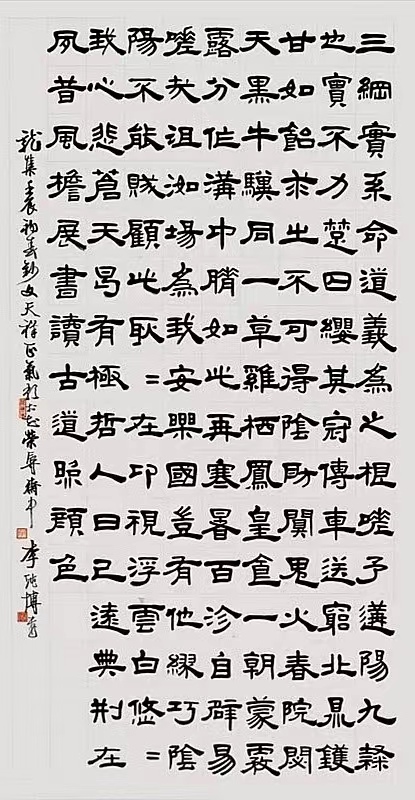 三綱實系命道義為之根嗟予遘陽九隸
也實不力楚囚纓其冠傳車送窮北鼎鑊
甘如飴求之不可得陰房闃鬼火春院閟
天黑牛驥同一草雞栖鳳皇食一朝蒙霧
露分作溝中膌如此再寒暑百沴自辟易
嗟哉沮洳場為我安樂國豈有他繆巧陰
陽不能賊顧此耿=在卬視浮雲白悠=
我心悲蒼天曷有極哲人日已遠典刑在
夙昔風檐展書讀古道照顏色
龍集壬辰初夏鈔文天祥正氣歌
李博